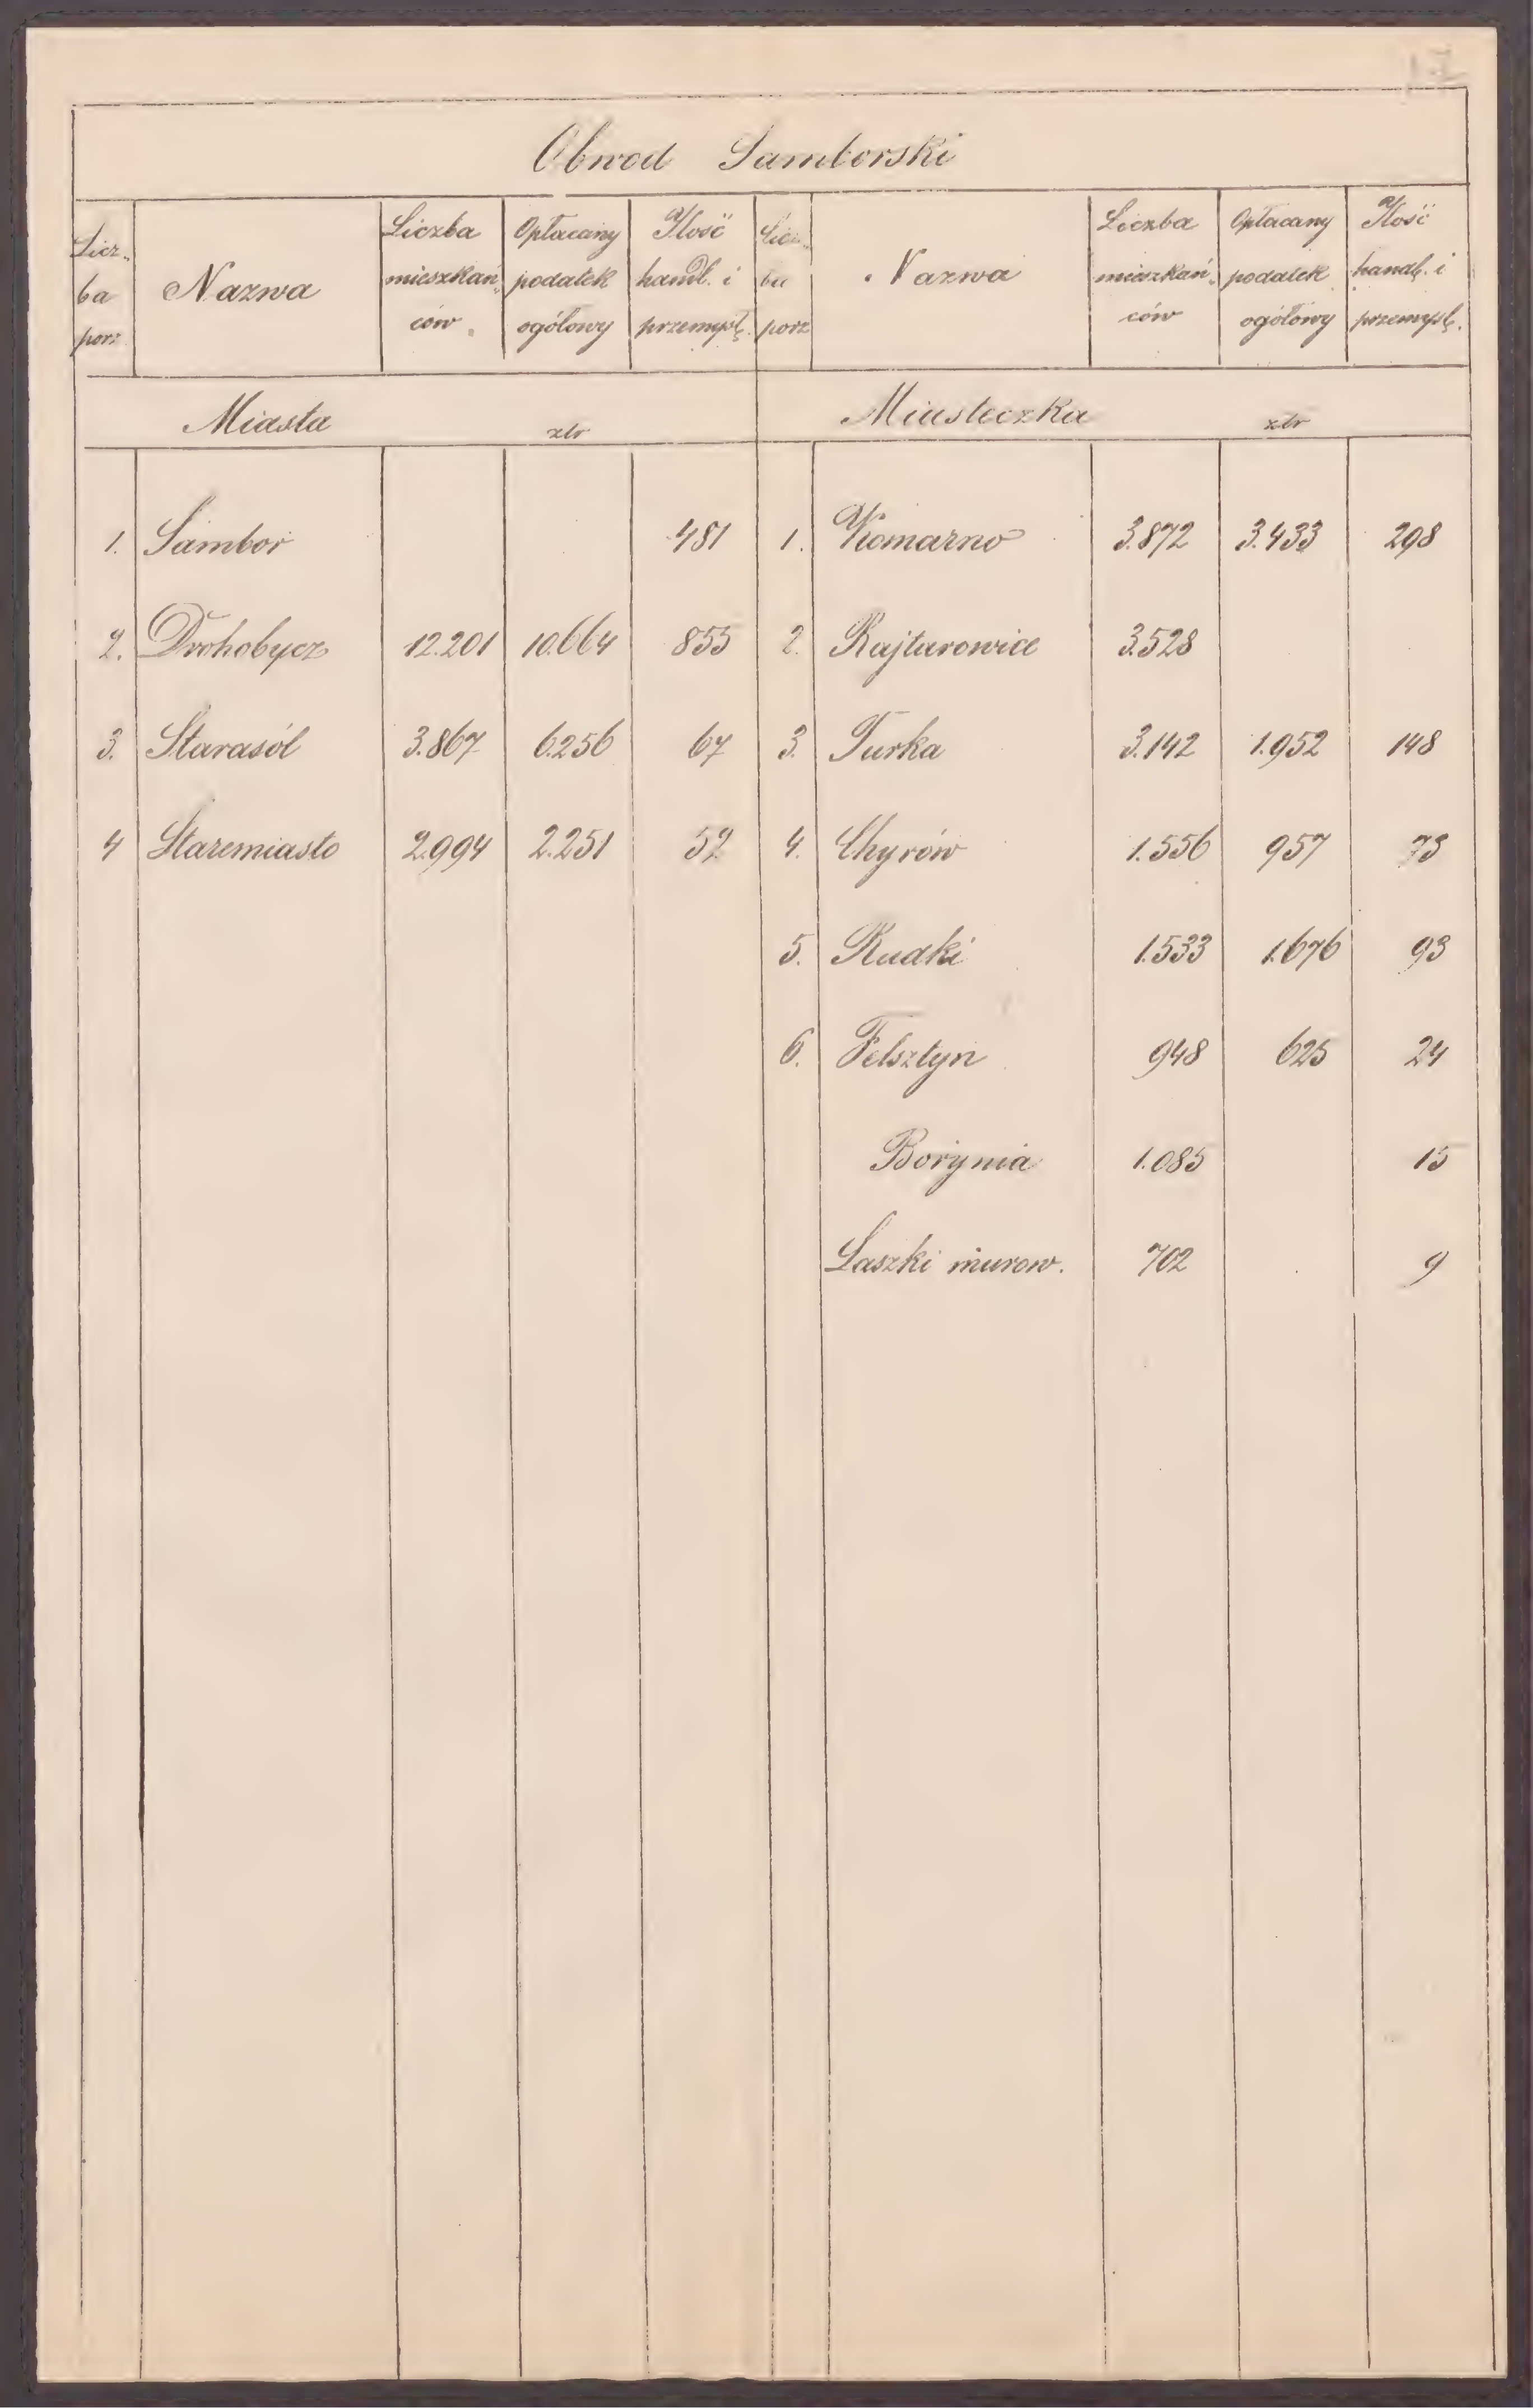 Obwod Samborski
Licz„ba porz Nazwa Liczba mieszkań„ców Opłacany podatek ogółowy Ilość handl. i przemysł. Licz„ba porz Nazwa Liczba mieszkań„ców Opłacany podatek ogółowy Ilość handl. i przemysł.
Miasta złr Miasteczka złr
1. Sambor 481 1. Komarno 3.872 3.433 298
2. Drohobycz 12.201 10.664 855 2. Rajtarowice 3.528
3. Starasól 3.867 6.256 67 3. Turka 3.142 1.952 148
4 Staremiasto 2.994 2.251 52 4. Chyrów 1.556 957 73
5. Rudki 1.533 1.676 93
6. Felsztyn 948 625 24
Borynia 1.085 15
Laszki murow. 702 9